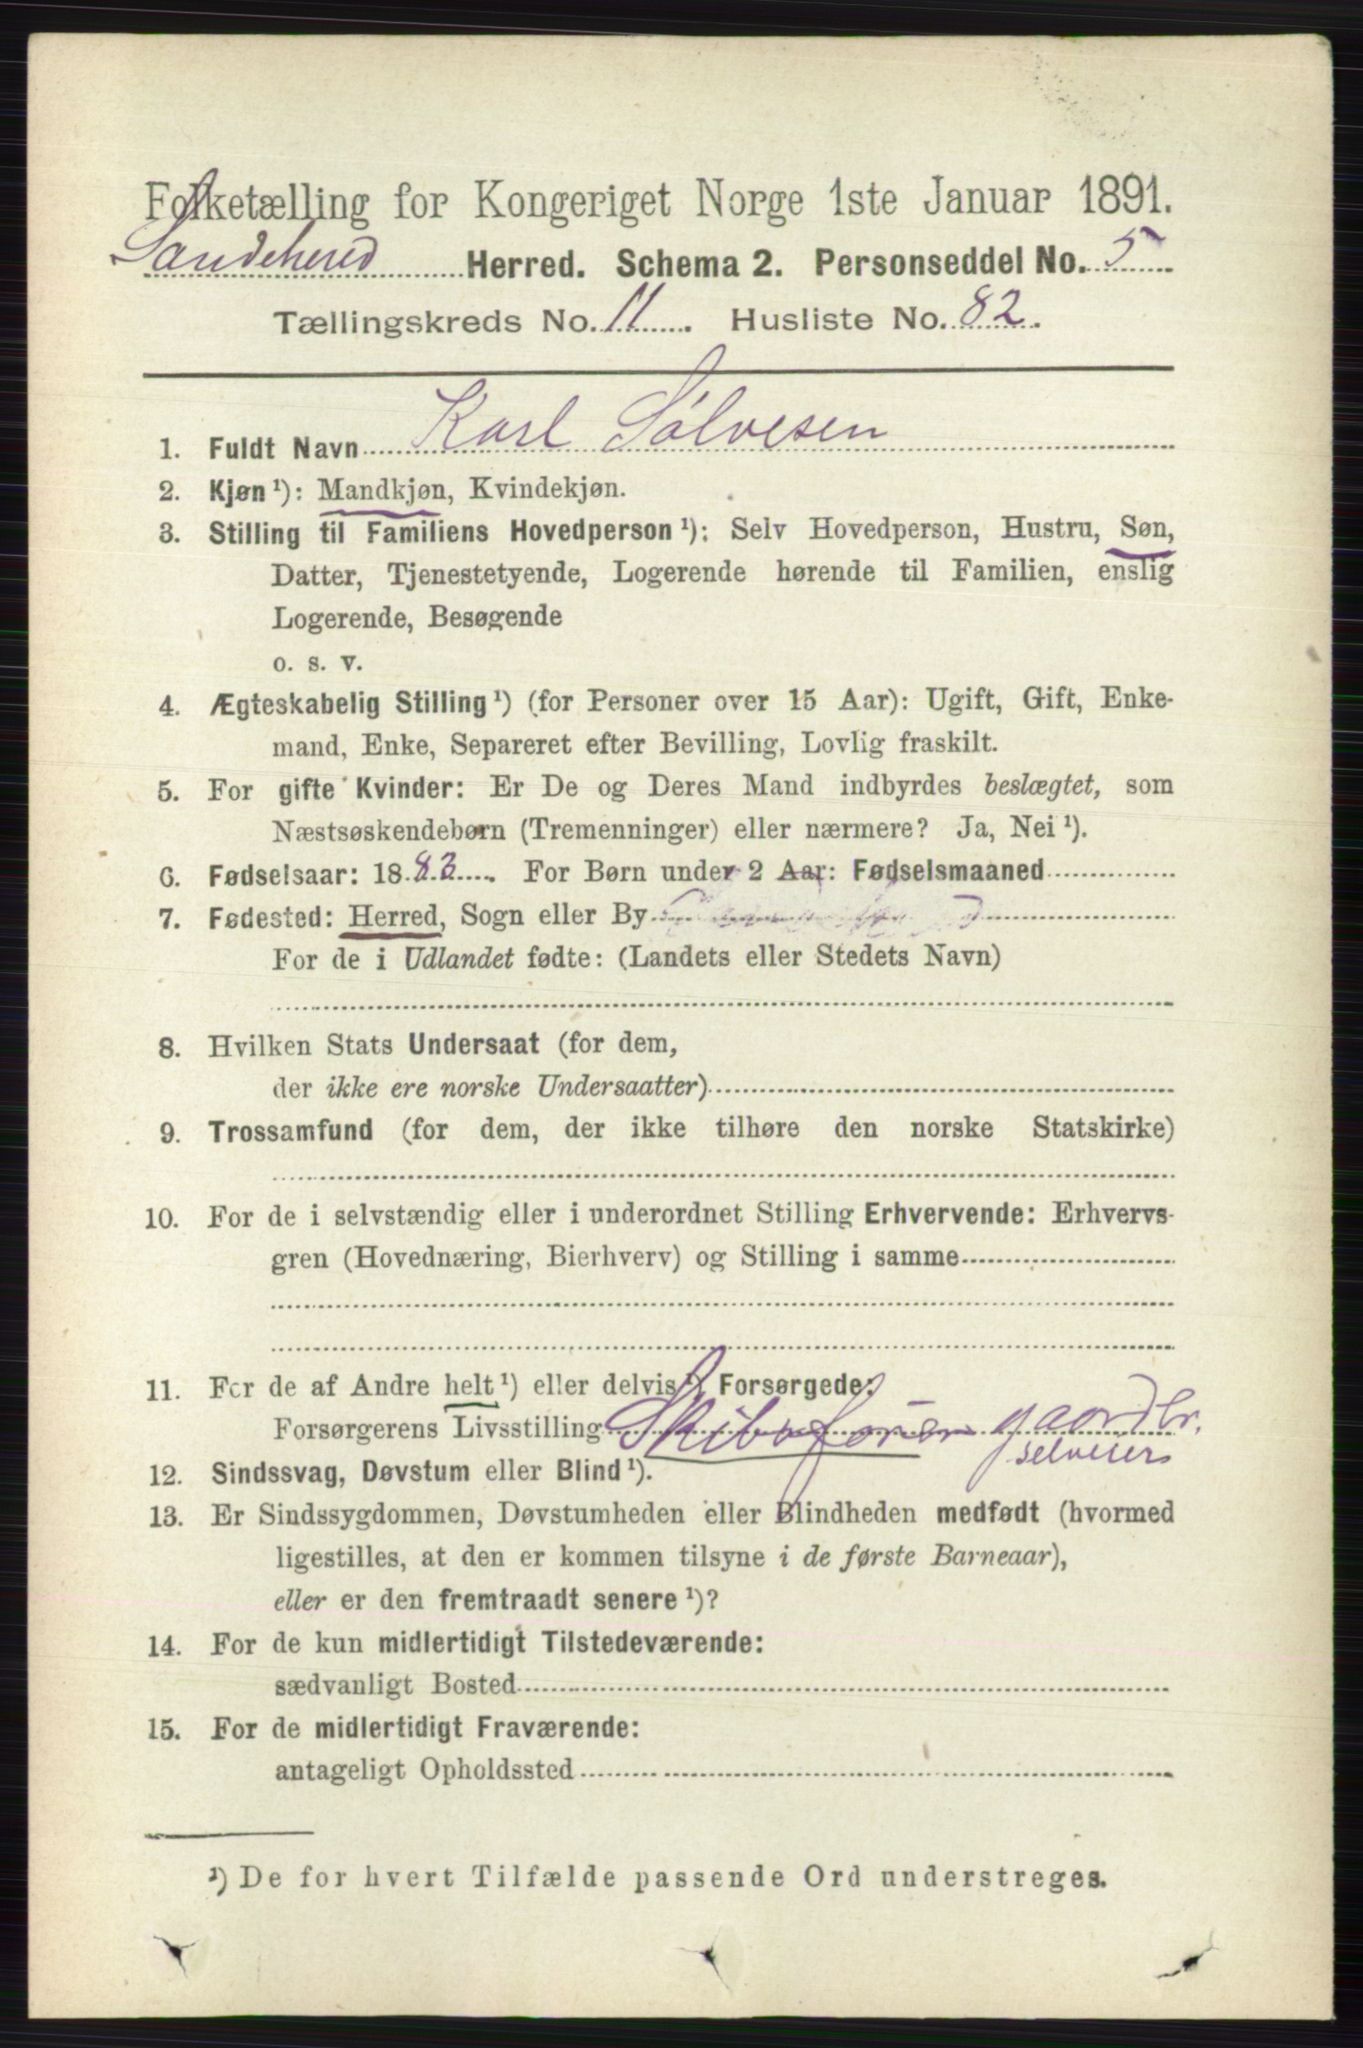 Folketælling for Kongeriget Norge 1ste Januar 1891.
Sandeherred Herred. Schema 2. Personseddel No. 5
Tællingskreds No. 11. Husliste No. 82.
1. Fuldt Navn Karl Sølvesen
2. Kjøn¹): Mandkjøn, Kvindekjøn.
3. Stilling til Familiens Hovedperson¹): Selv Hovedperson, Hustru, Søn,
Datter, Tjenestetyende, Logerende hørende til Familien, enslig
Logerende, Besøgende
o. s. v.
4. Ægteskabelig Stilling¹) (for Personer over 15 Aar): Ugift, Gift, Enke-
mand, Enke, Separeret efter Bevilling, Lovlig fraskilt.
5. For gifte Kvinder: Er De og Deres Mand indbyrdes beslægtet, som
Næstsøskendebørn (Tremenninger) eller nærmere? Ja, Nei¹).
6. Fødselsaar: 1883. For Børn under 2 Aar: Fødselsmaaned
7. Fødested: Herred, Sogn eller By
For de i Udlandet fødte: (Landets eller Stedets Navn)
8. Hvilken Stats Undersaat (for dem,
der ikke ere norske Undersaatter)
9. Trossamfund (for dem, der ikke tilhøre den norske Statskirke)
10. For de i selvstændig eller i underordnet Stilling Erhvervende: Erhvervs-
gren (Hovednæring, Bierhverv) og Stilling i samme
11. For de af Andre helt¹) eller delvis¹) Forsørgede:
Forsørgerens Livsstilling Skibsfører gaardbr.
selveier
12. Sindssvag, Døvstum eller Blind¹).
13. Er Sindssygdommen, Døvstumheden eller Blindheden medfødt (hvormed
ligestilles, at den er kommen tilsyne i de første Barneaar),
eller er den fremtraadt senere¹)?
14. For de kun midlertidigt Tilstedeværende:
sædvanligt Bosted
15. For de midlertidigt Fraværende:
antageligt Opholdssted
¹) De for hvert Tilfælde passende Ord understreges.